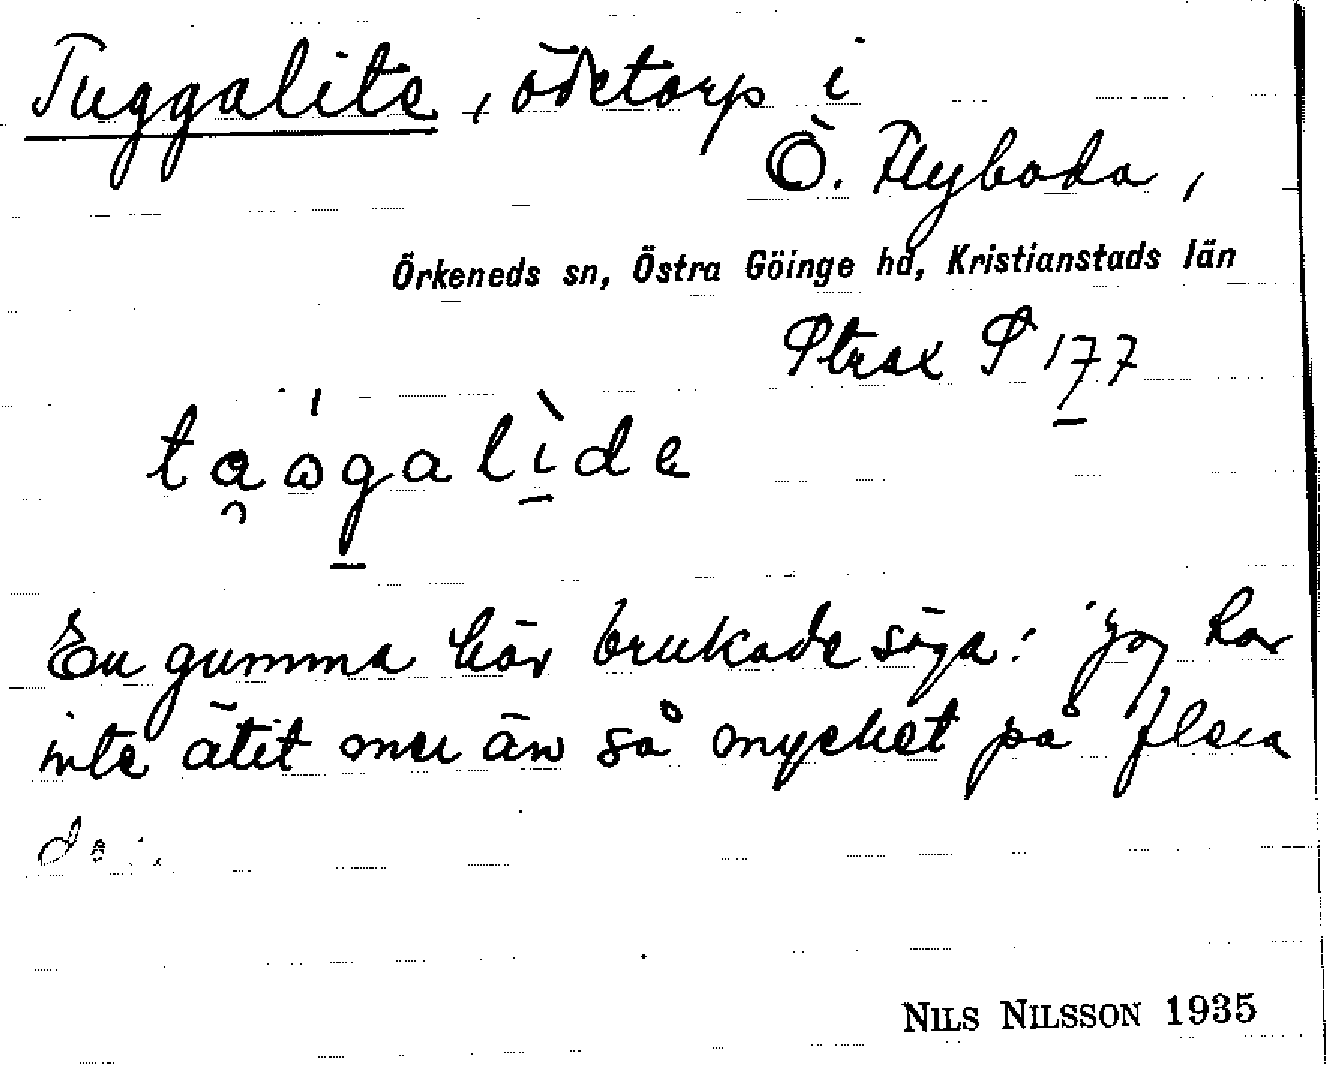 Tuggalite, ödetorp i
Ö. Flyboda,
Örkeneds sn, Östra Göinge hd, Kristianstads län
Strax S 177
taωgalìde
En gumma här brukade säga: "jag har
inte ätit mer än så mycket på flera
da:.
NILS NILSSON 1935